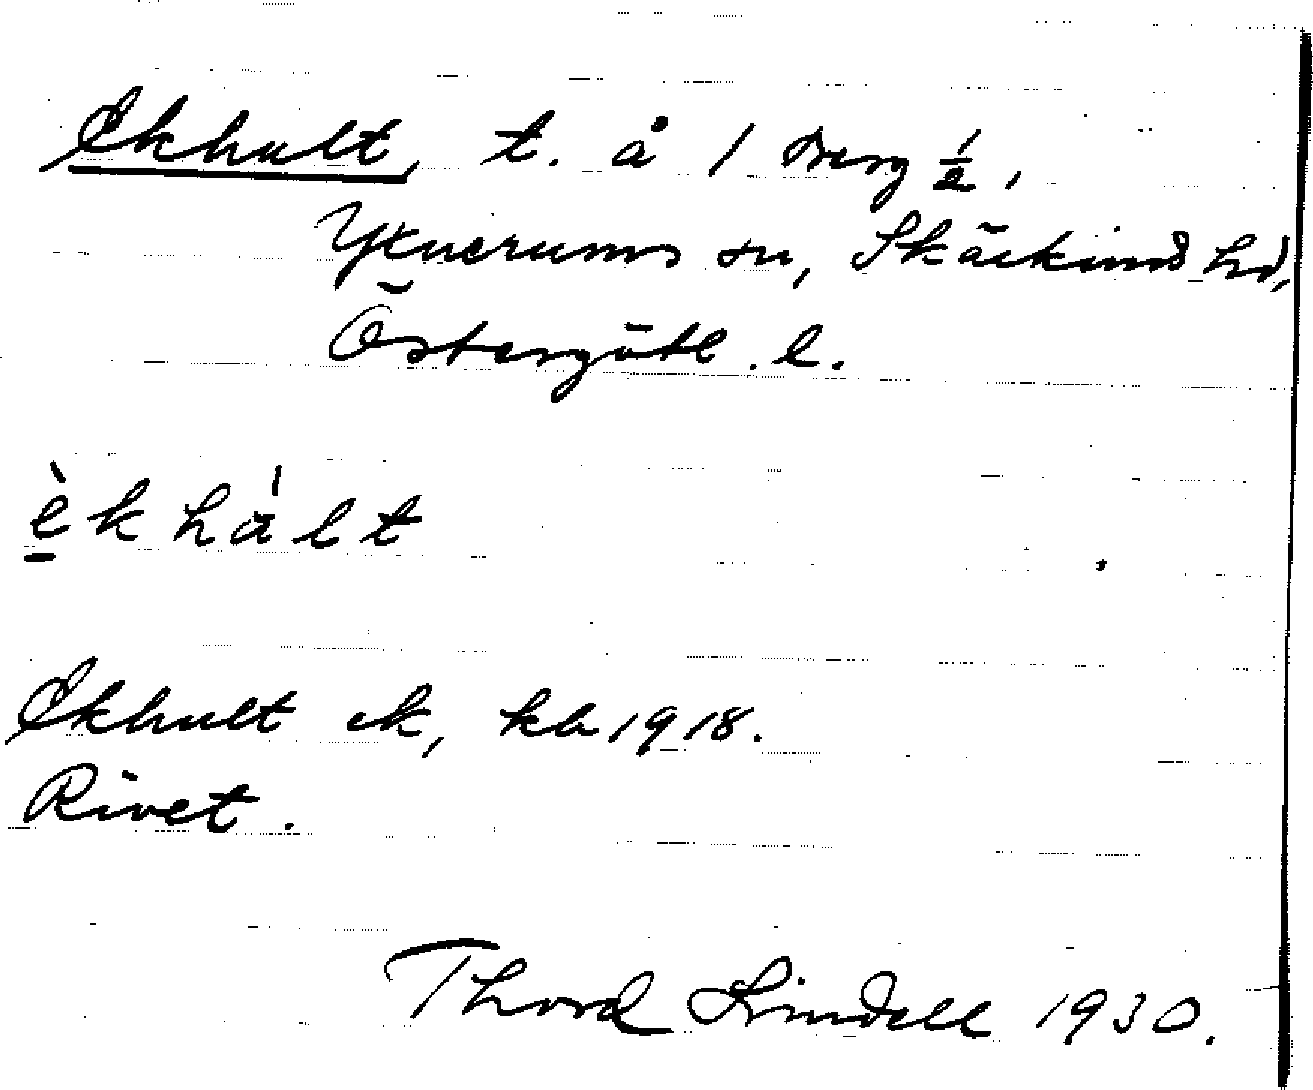 Ekhult, t. å 1 Berg ½,
Yxnerums sn, Skärkinds hd,
Östergötl. l.
èkhál t
Ekhult ek, kb 1918.
Rivet.
Thord Lindell 1930.